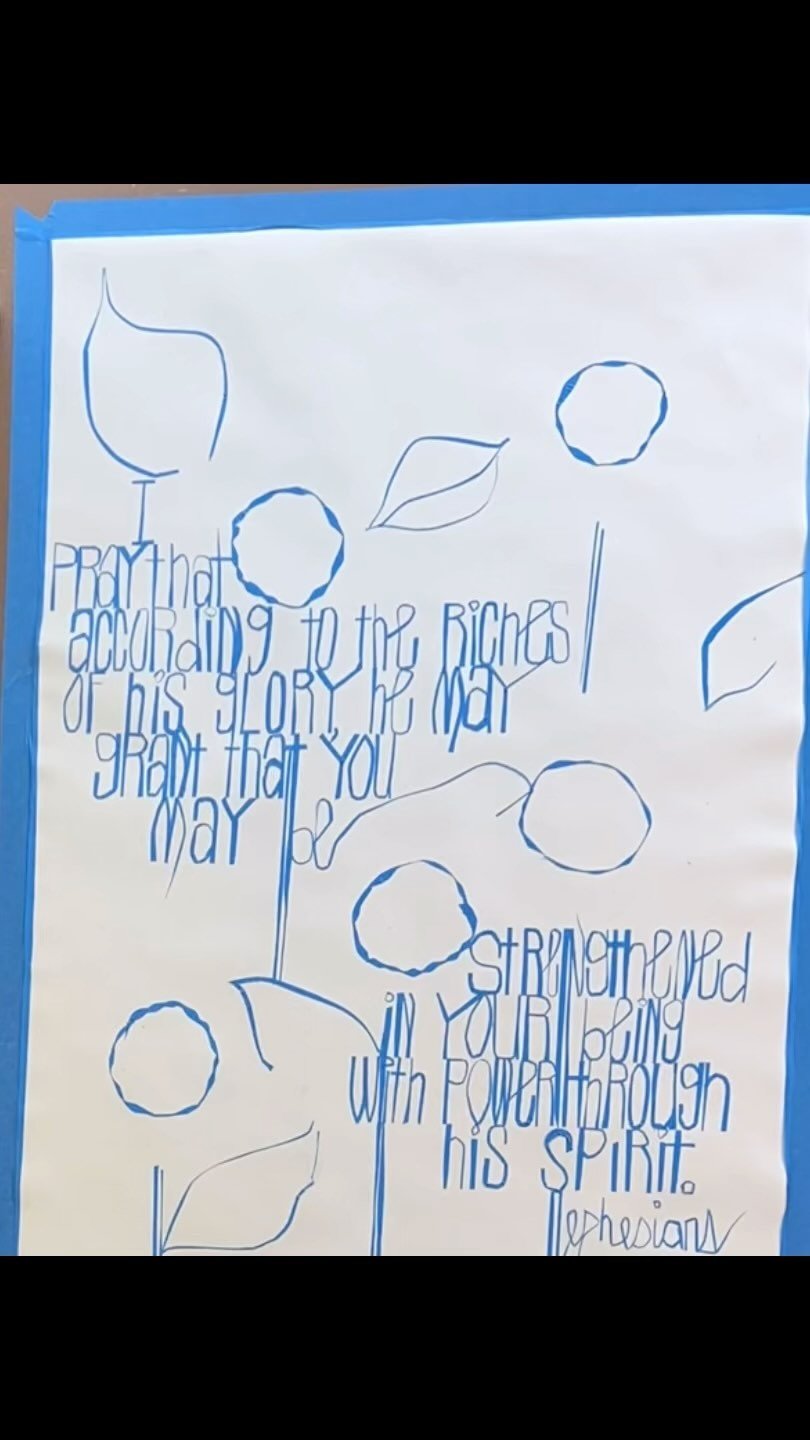 I
PRAY that
accoRding to the RicHes
oF his gLORY he MaY
gRaNt that YOU
MaY be
StReNgtheNed
iN YOUR being
With POWeR thROUgh
his SPiRit.
ephesians